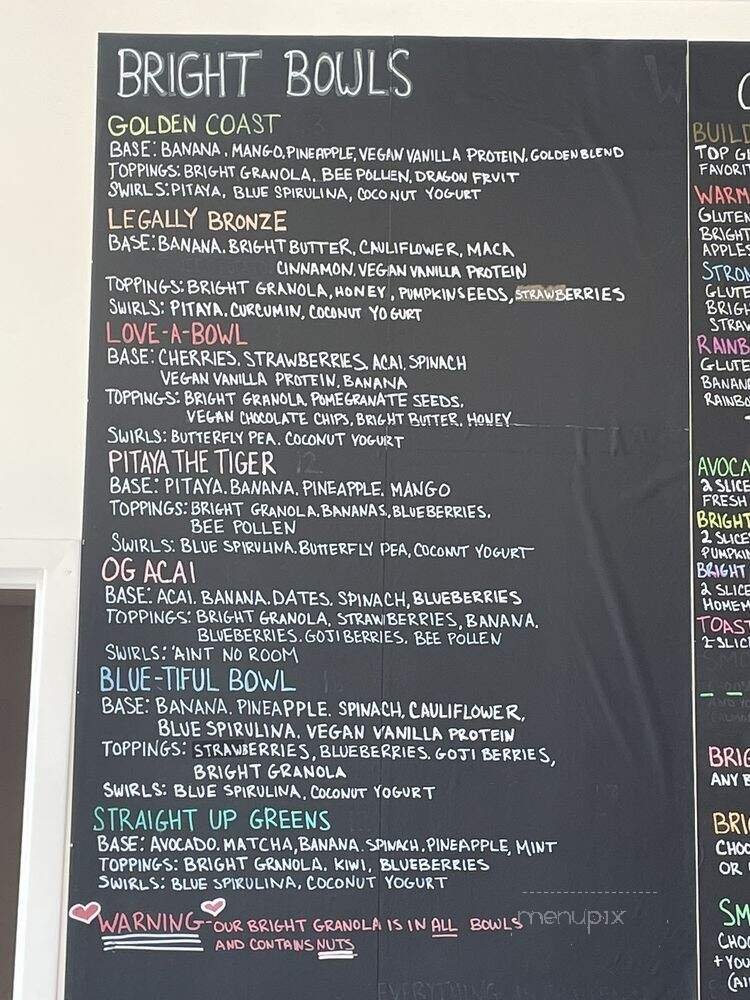 BRIGHT BOWLS
GOLDEN COAST
BASE: BANANA. MANGO, PINEAPPLE, VEGAN VANILLA PROTEIN. GOLDEN BLEND
TOPPINGS: BRIGHT GRANOLA. BEE POLLEN, DRAGON FRUIT
SWIRLS: PITAYA, BLUE SPIRULINA, COCONUT YOGURT
LEGALLY BRONZE
BASE: BANANA. BRIGHT BUTTER, CAULIFLOWER, MACA
CINNAMON, VEGAN VANILLA PROTEIN
TOPPINGS: BRIGHT GRANOLA, HONEY, PUMPKIN SEEDS, STRAWBERRIES
SWIRLS: PITAYA. CURCUMIN, COCONUT YOGURT
LOVE-A-BOWL
BASE: CHERRIES. STRAWBERRIES, ACAI, SPINACH
VEGAN VANILLA PROTEIN, BANANA
TOPPINGS: BRIGHT GRANOLA, POMEGRANATE SEEDS,
VEGAN CHOCOLATE CHIPS, BRIGHT BUTTER, HONEY
SWIRLS: BUTTERFLY PEA, COCONUT YOGURT
PITAYA THE TIGER
BASE: PITAYA. BANANA. PINEAPPLE. MANGO
TOPPINGS: BRIGHT GRANOLA, BANANAS, BLUEBERRIES.
BEE POLLEN
SWIRLS: BLUE SPIRULINA. BUTTERFLY PEA, COCONUT YOGURT
OG ACAI
BASE: ACAI. BANANA. DATES. SPINACH, BLUEBERRIES
TOPPINGS: BRIGHT GRANOLA, STRAWBERRIES, BANANA.
BLUEBERRIES. GOJI BERRIES, BEE POLLEN
SWIRLS: 'AINT NO ROOM
BLUE-TIFUL BOWL
BASE: BANANA. PINEAPPLE. SPINACH, CAULIFLOWER,
BLUE SPIRULINA. VEGAN VANILLA PROTEIN
TOPPINGS: STRAWBERRIES, BLUEBERRIES. GOJI BERRIES,
BRIGHT GRANOLA
SWIRLS: BLUE SPIRULINA, COCONUT YOGURT
STRAIGHT UP GREENS
BASE: AVOCADO. MATCHA, BANANA. SPINACH. PINEAPPLE, MINT
TOPPINGS: BRIGHT GRANOLA, KIWI, BLUEBERRIES
SWIRLS: BLUE SPIRULINA, COCONUT YOGURT
WARNING-OUR BRIGHT GRANOLA IS IN ALL BOWLS
AND CONTAINS NUTS
menupix
BUILD
TOP
FAVORIT
WARM
GLUTEN
BRIGHT
APPLES
STRON
GLUTE
BRIGH
STRAW
RAINB
GLUTE
BANAN
RAINBO
AVOCA
2 SLICE
FRESH
BRIGHT
2 SLICE
PUMPKIN
BRIGHT
2 SLICE
HOMEM
TOAST
2-SLIC
BRIG
ANY B
BRI
CHOO
OR
SM
CHOO
+YOU
(AI